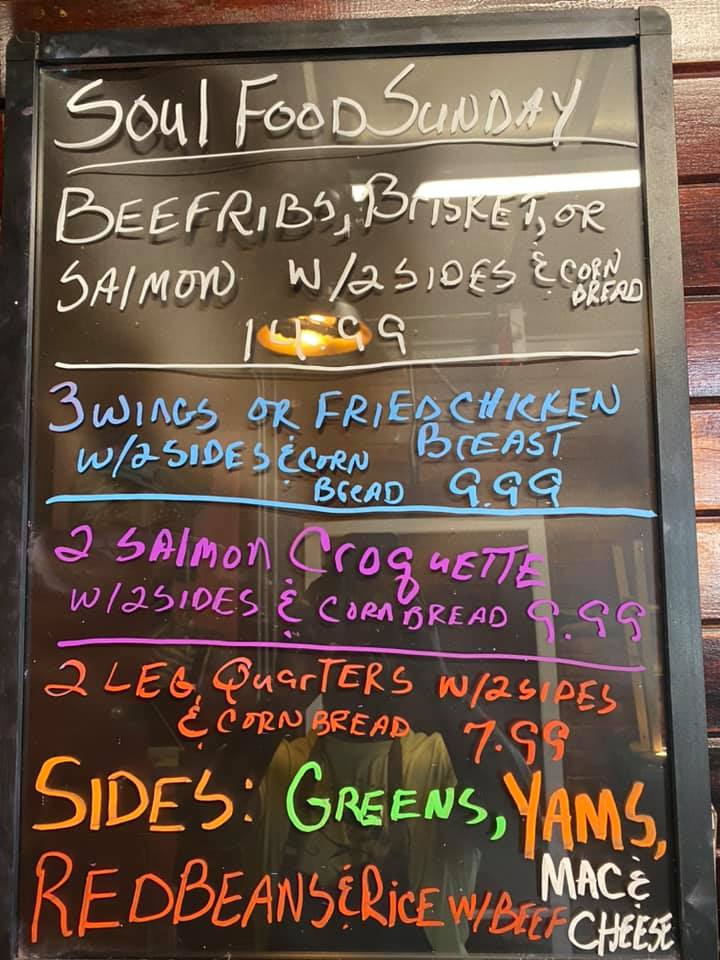 SOUL FOOD SUNDAY
BEEF RIBS, BRISKET, OR
SALMON W/2 SIDES & CORN BREAD
14.99
3 WINGS OR FRIED CHICKEN BREAST
W/2 SIDES & CORN BREAD 9.99
2 SALMON CROQUETTE
W/2 SIDES & CORN BREAD 9.99
2 LEG QUARTERS W/2 SIDES
& CORN BREAD 7.99
SIDES: GREENS, YAMS,
RED BEANS & RICE W/BEEF
MAC &
CHEESE